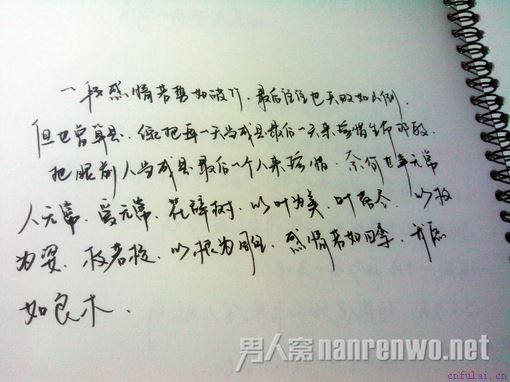 一段感情若势如破竹.最后往往也兵败如山倒.
但也曾算是.能把每一天当成是最后一天来珍惜生命
把眼前人当成是最后一个人来珍惜.奈何世事无常
人无常.爱无常.花辞树.以叶为美.叶落尽.以枝
为姿.枝若枯.以根为.感情若如四季.亦应
如良木.
男人窝nanrenwo.net
cnfulai.cn